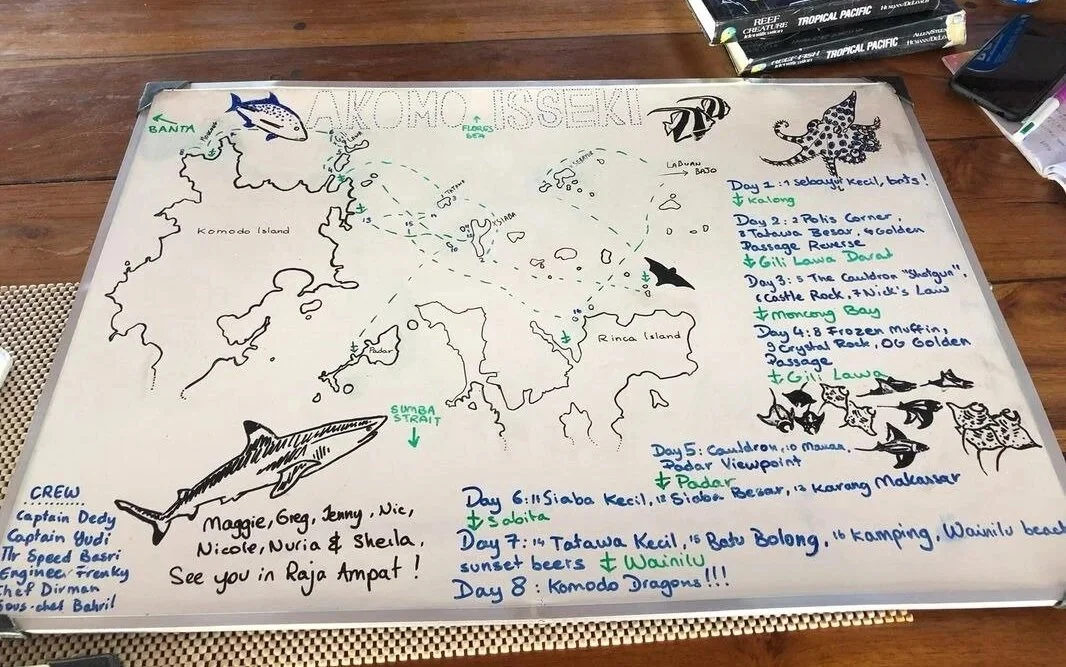 REEF CREATURE Identification TROPICAL PACIFIC
REEF FISH Identification TROPICAL PACIFIC
AKOMO ISSEKI
BANTA
FLORES SEA
LABUAN BAJO
Komodo Island
TATAWA
SIABA
Padar
Rinca Island
SUMBA STRAIT
13
15
16
Day 1: 1 Sebayur Kecil,
Kalong
Day 2: 2 Polis Corner,
3 Tatawa Besar, 4 Golden
Passage Reverse
Gili Lawa Darat
Day 3: 5 The Cauldron "Shotgun",
6 Castle Rock, 7 Nick's Law
Moncong Bay
Day 4: 8 Frozen Muffin,
9 Crystal Rock, OG Golden
Passage
Gili Lawa
Day 5: Cauldron, 10 Mawan,
Padar Viewpoint
Padar
Day 6: 11 Siaba Kecil, 12 Siaba Besar, 13 Karang Makassar
Sabita
Day 7: 14 Tatawa Kecil, 15 Batu Bolong, 16 Kamping, Wainilu beach
sunset beers Wainilu
Day 8: Komodo Dragons!!!
CREW
Captain Dedy
Captain Yudi
Mr Speed Basri
Engineer Frenky
Chef Dirman
Sous-chef Bahril
Maggie, Greg, Jenny, Nic,
Nicole, Nuria & Sheila,
See you in Raja Ampat!